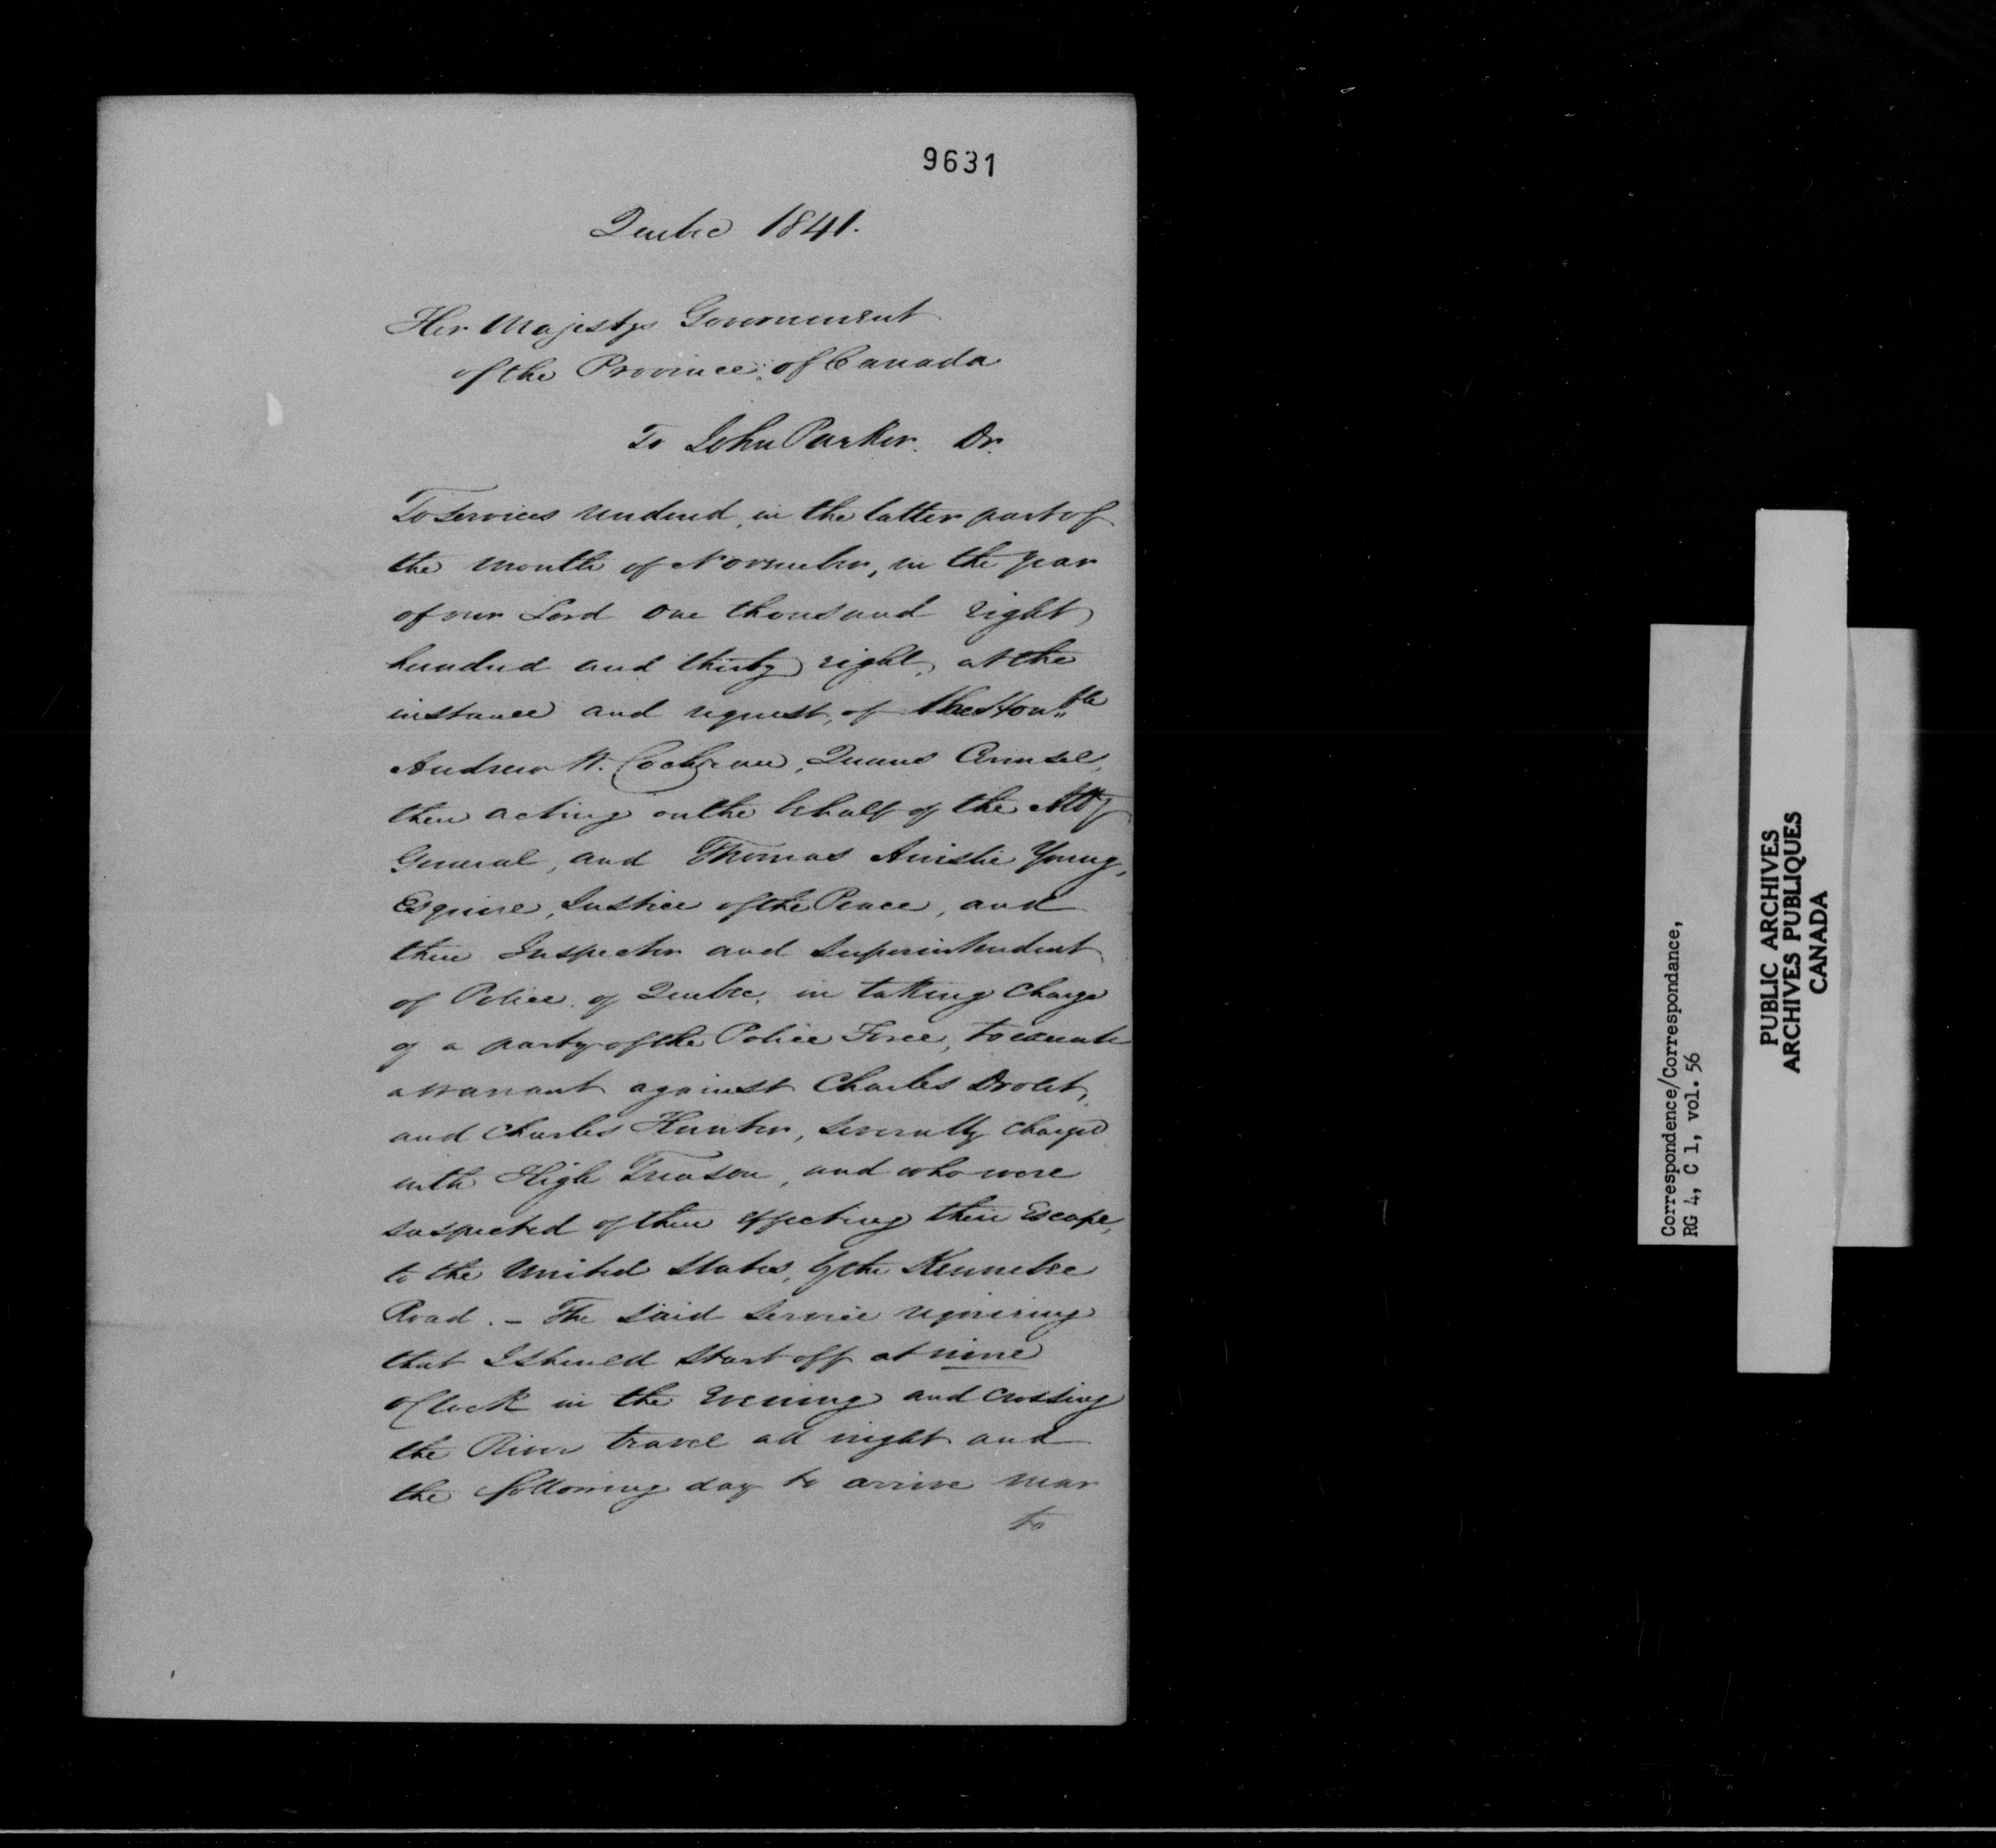 9631
Quebec 1841.
Her Majestys Government
of the Province of Canada
To John Parker. Dr.
To services rendered, in the latter part of
the month of November, in the year
of our Lord one thousand eight
hundred and thirty eight, at the
instance and request, of the Honble
Andrew W. Cochrane, Queens Counsel,
then acting on the behalf of the Atty
General, and Thomas Ainslie Young,
Esquire, Justice of the Peace, and
then Inspector and Superintendent
of Police of Quebec, in taking charge
of a party of the Police Force, to execute
a warrant against Charles Drolet,
and Charles Hunter, severally charged
with High Treason, and who were
suspected of then effecting their Escape,
to the United States, by the Kennebec
Road. – The said service requiring
that I should start off at nine
o'Clock in the Evening and crossing
the River travel all night and
the following day to arrive near
to
Correspondence/Correspondance,
RG 4, C 1, vol. 56
PUBLIC ARCHIVES
ARCHIVES PUBLIQUES
CANADA